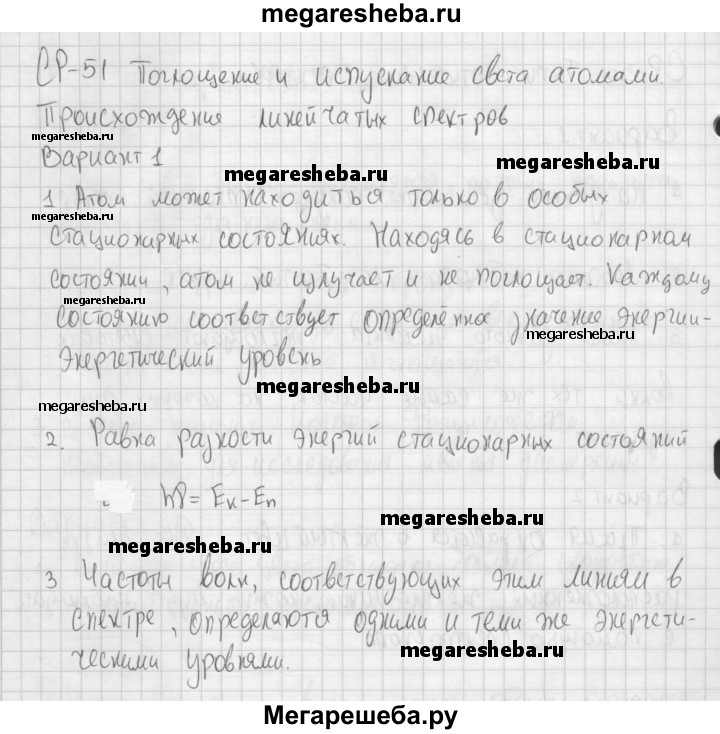 megaresheba.ru
СР-51 Поглощение и испускание света атомами.
Происхождение линейчатых спектров
megaresheba.ru
Вариант 1
megaresheba.ru
megaresheba.ru
1 Атом может находиться только в особых
megaresheba.ru
стационарных состояниях. Находясь в стационарном
состоянии, атом не излучает и не поглощает. Каждому
megaresheba.ru
состоянию соответствует определённое значение энергии-
megaresheba.ru
энергетический уровень
megaresheba.ru
megaresheba.ru
2. Равна разности энергий стационарных состояний
hν = Eк - En
megaresheba.ru
megaresheba.ru
3 Частоты волн, соответствующих этим линиям в
спектре, определяются одними и теми же энергети-
ческими уровнями.
megaresheba.ru
Мегарешеба.ру